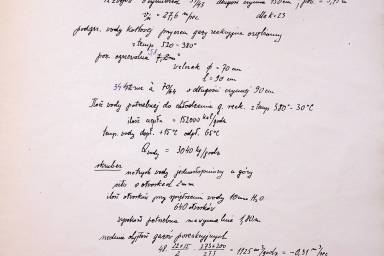 długość czynna 130 cm
v = 27,6 m/sec dla k = 23
podgrz. wody kotłowej przyjęciem gazy reakcyjne oziębiamy
z temp. 520 - 380°
pow. ogrzewalna 7,2 m²
walczak φ = 70 cm
l = 90 cm
34 à 70/64 o długości czynnej 90 cm
Ilość wody potrzebnej do chłodzenia g. reak. z temp 380° - 30°C
ilość ciepła = 152000 kal/godz
temp. wody dopł. +15°C odpł. 65°C
Q wody = 3040 kg/godz
skruber
natrysk wody jednostopniowy u góry
sito o otworkach 2 mm
ilość otworków przy spiętrzeniu wody 10 mm H₂O
640 otworków
wysokość potrzebna na wymianę 1,80 m.
objętość gazów poreakcyjnych
48 · 22+15/2 · 273+200/273 = 1125 m³/godz = 0,31 m³/sec